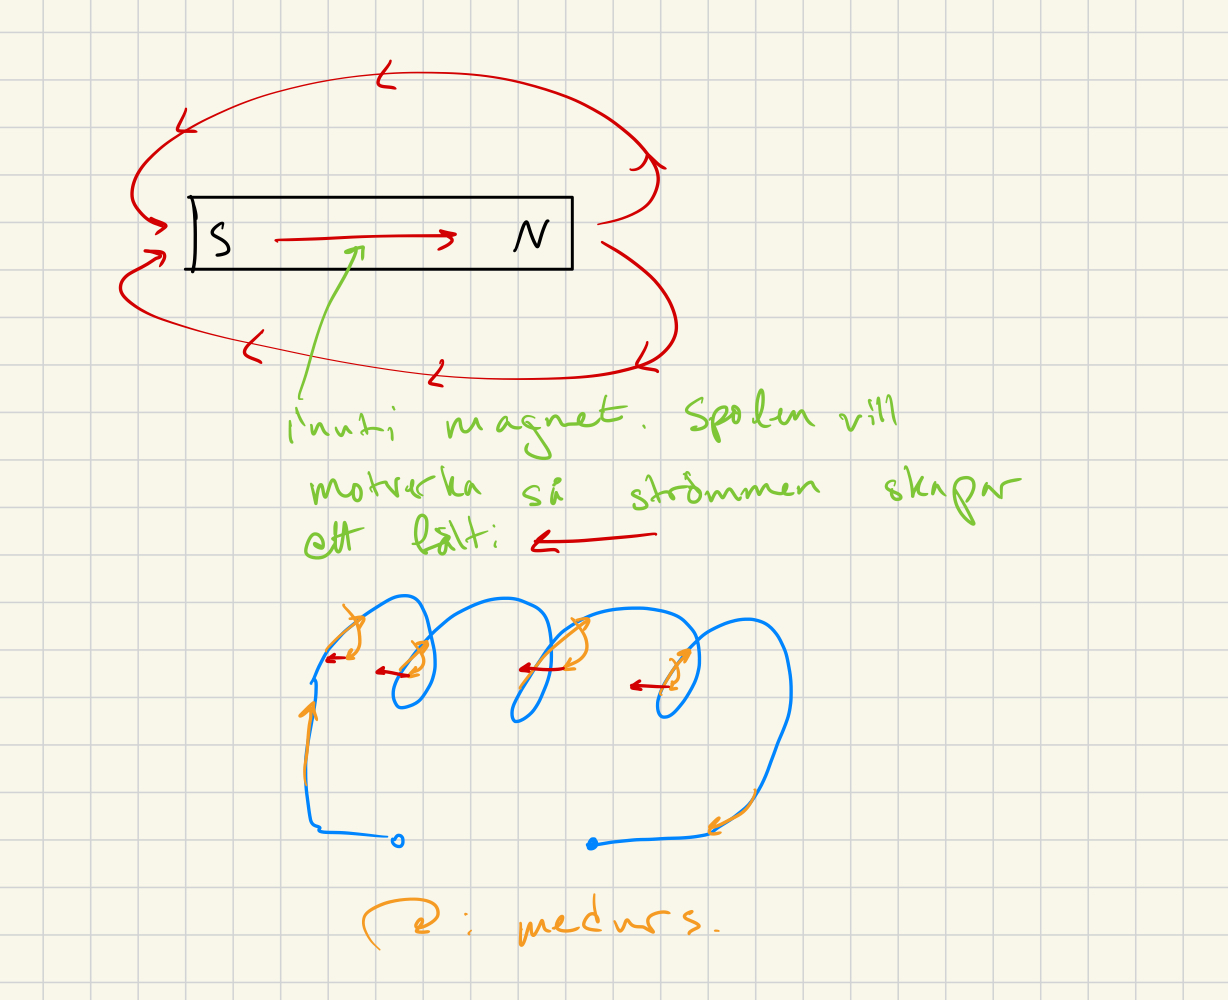 S N
inuti magnet. Spolen vill
motverka så strömmen skapar
ett fält:
: medurs.